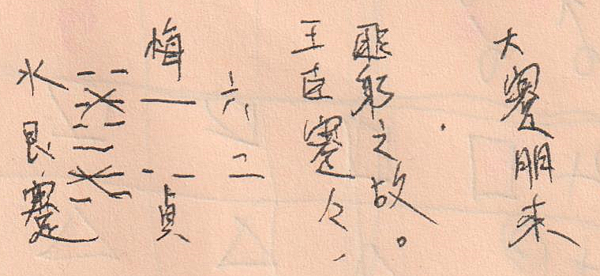 水艮蹇
悔
貞
六二
王臣蹇々、
匪躬之故。
大蹇朋来